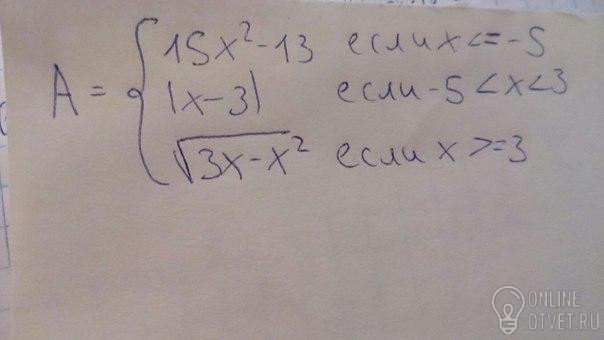 A = { 15x² - 13 если x <= -5
|x - 3| если -5 < x < 3
√3x - x² если x >= 3
ONLINE
OTVET.RU